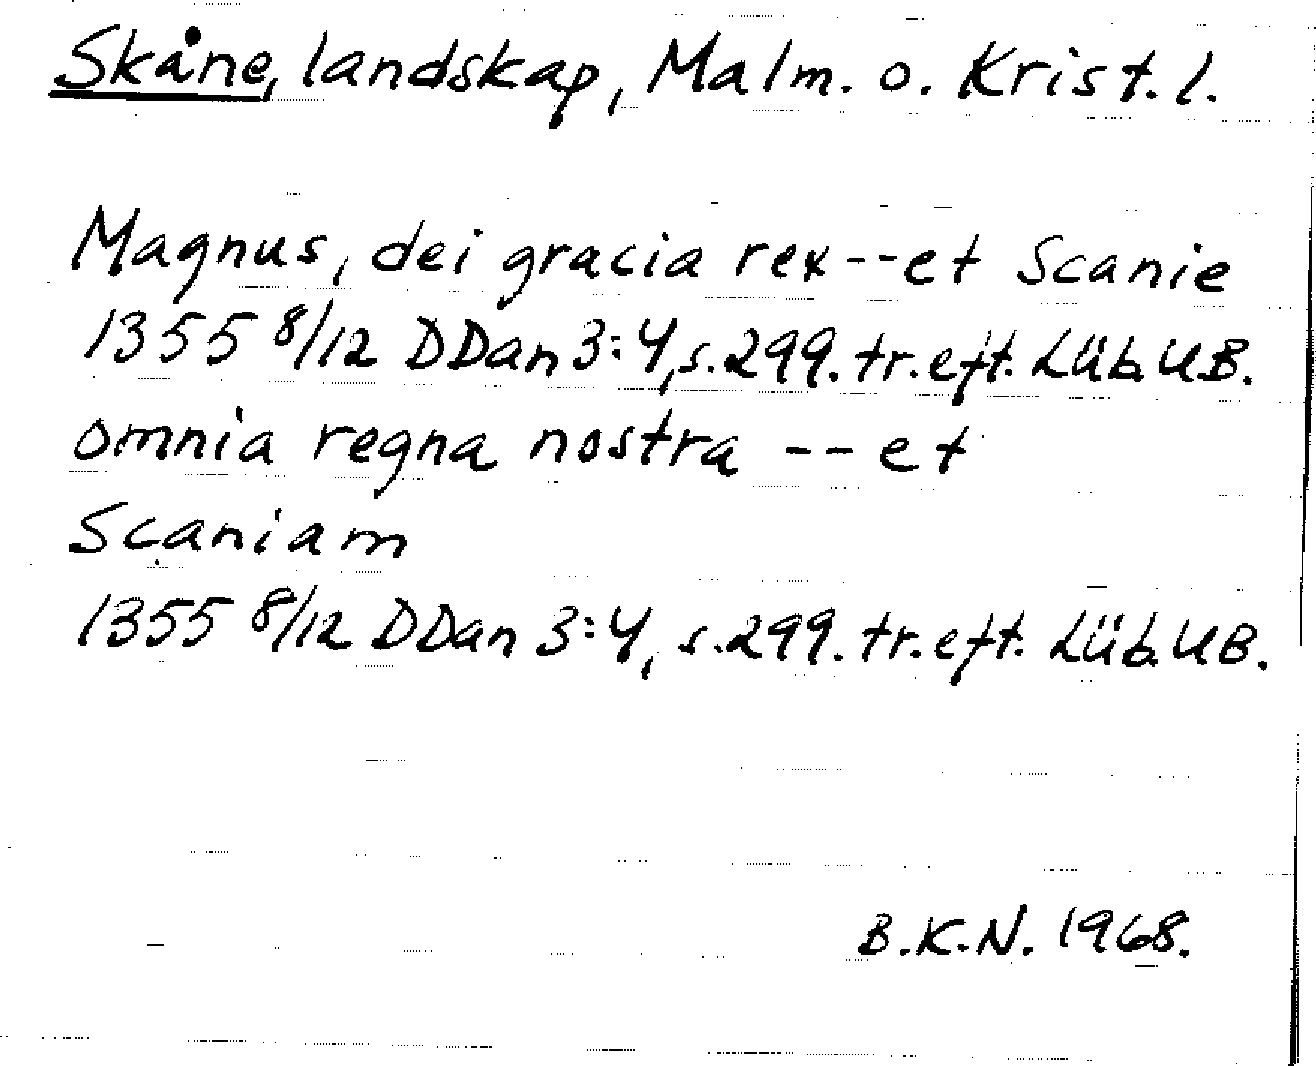 Skåne, landskap, Malm. o. Krist. l.
Magnus, dei gracia rex--et Scanie
1355 8/12 DDan 3:4, s.299. tr. eft. Lüb. UB.
omnia regna nostra -- et
Scaniam
1355 8/12 DDan 3:4, s.299. tr. eft. Lüb. UB.
B.K.N. 1968.